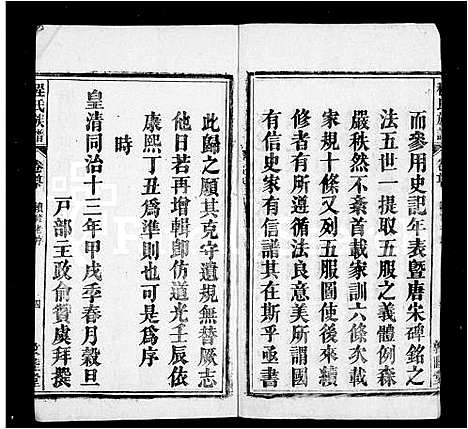 而參用史記年表暨唐宋碑銘之
法五世一提取五服之義體例森
嚴秩然不紊首載家訓六條次載
家規十條又列五服圖使後之續
修者有所遵循法良意美所謂
有信史家有信譜其在斯乎亟書
此歸之願其克守遺規無替厥志
他日若再增輯卽仿道光壬辰依
康熙丁丑爲準則也可是爲序
時
皇清同治十三年甲戌季春月穀旦
戸部主政俞贊虞拜撰
程氏族譜
卷首
四